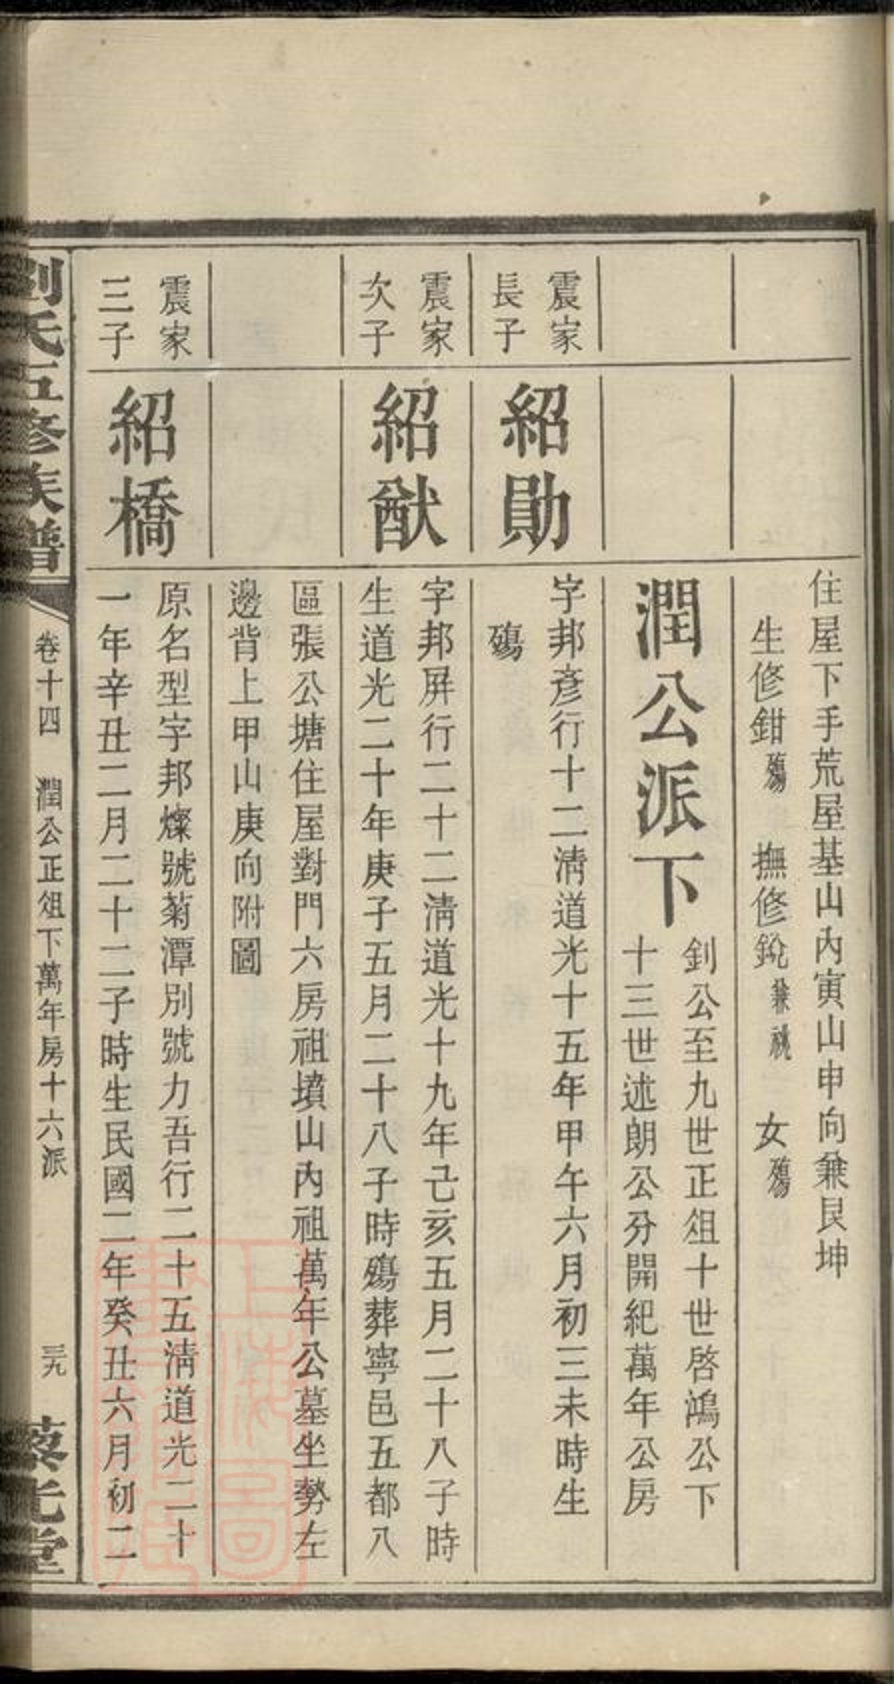 住屋下手荒屋基山內寅山申向兼艮坤
生修鉗殤 撫修銳兼祧 女殤
潤公派下
釗公至九世正俎十世啓鴻公下
十三世述朗公分開紀萬年公房
震家
長子
紹勛
字邦彥行十二淸道光十五年甲午六月初三未時生
殤
震家
次子
紹猷
字邦屏行二十二淸道光十九年己亥五月二十八子時
生道光二十年庚子五月二十八子時殤葬寧邑五都八
區張公塘住屋對門六房祖墳山內祖萬年公墓坐勢左
邊背上甲山庚向附圖
震家
三子
紹橋
原名型字邦燦號菊潭別號力吾行二十五淸道光二十
一年辛丑二月二十二子時生民國二年癸丑六月初二
劉氏五修族譜
卷十四 潤公正俎下萬年房十六派
三九
藜光堂